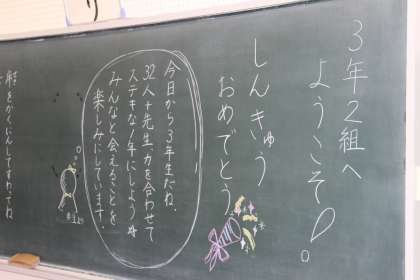 3年2組へ
ようこそ!
しんきゅう
おめでとう
今日から3年生だね。
32人+先生、力を合わせて
ステキな1年にしよう
みんなと会えることを
楽しみにしています。
をかくにんしてすわってね
り